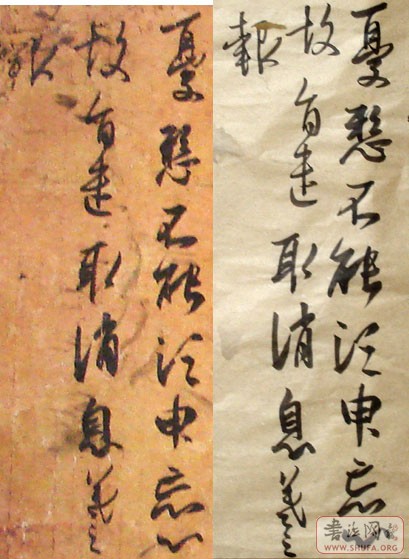 憂懸不能須臾忘心
故旨遣取消息羲之
報
憂懸不能須臾忘心
故旨遣取消息羲之
報
書法网
WWW.SHUFA.ORG